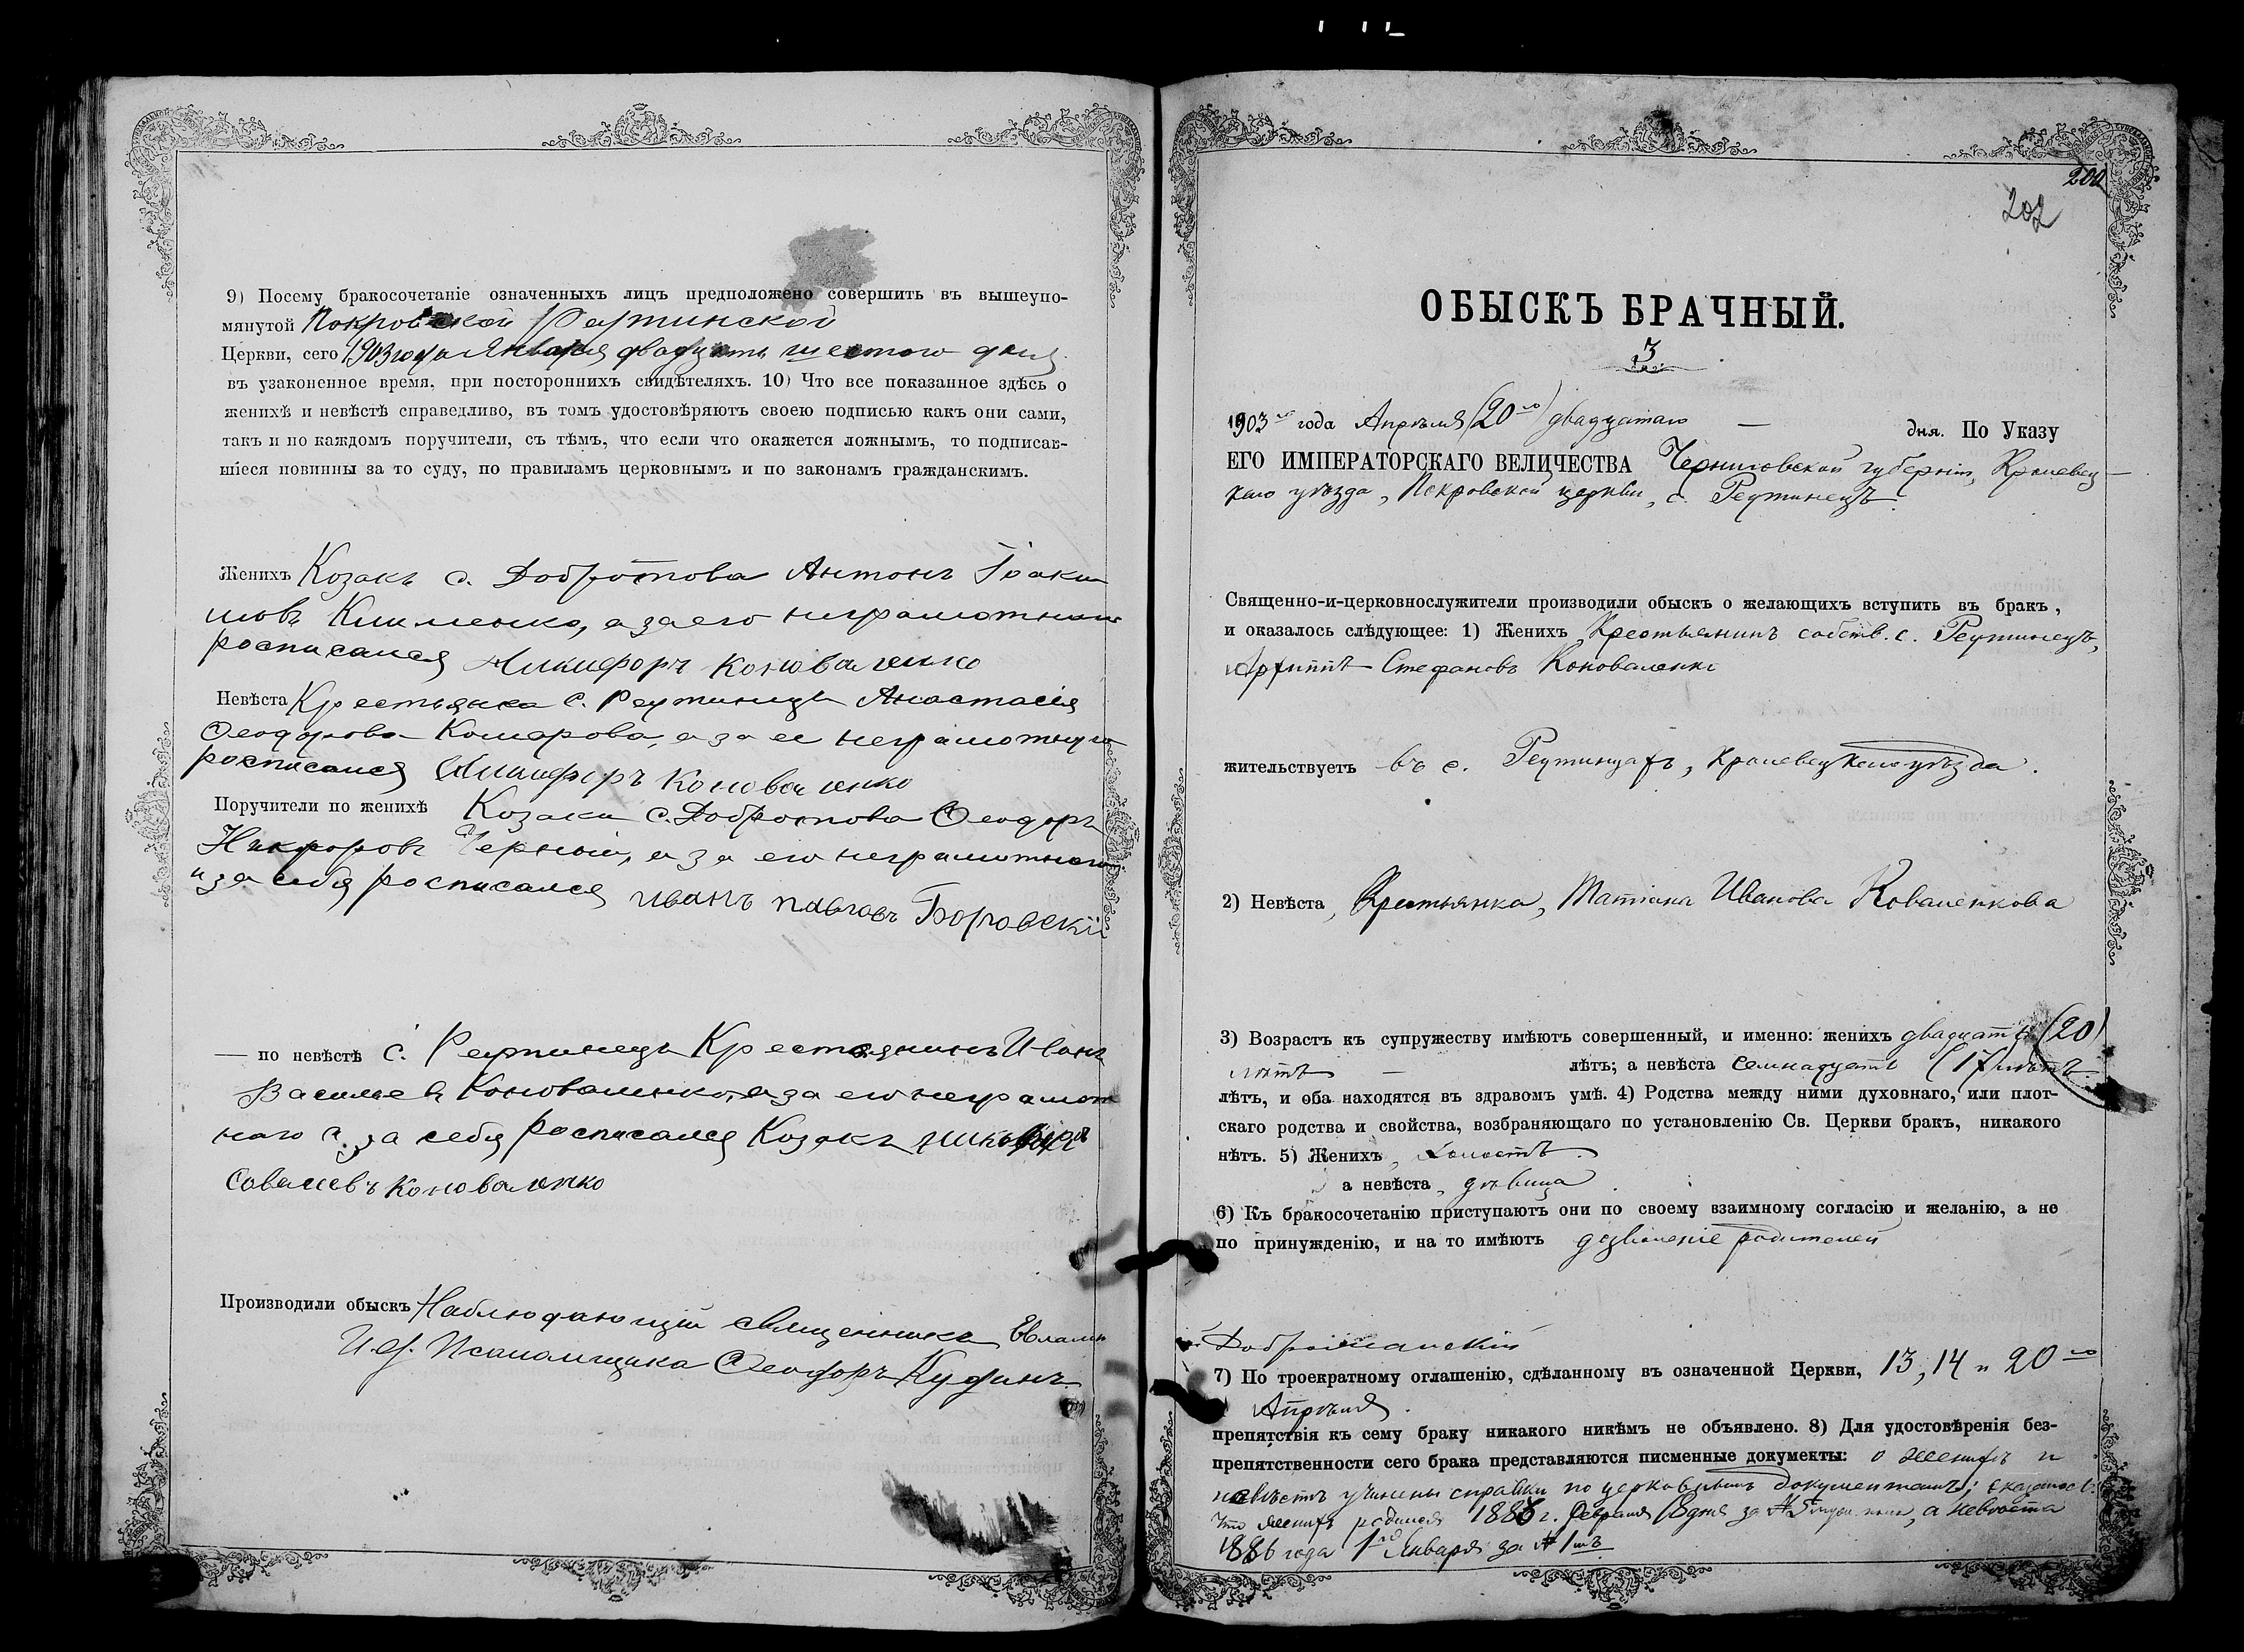 9) Посему бракосочетаніе означенныхъ лицъ предположено совершить въ вышеупо-
мянутой Покровской Реутинской
Церкви, сего 1903 года Января двадцать шестого дня
въ узаконенное время, при постороннихъ свидѣтеляхъ. 10) Что все показанное здѣсь о
женихѣ и невѣстѣ справедливо, въ томъ удостовѣряютъ своею подписью какъ они сами,
такъ и по каждомъ поручители, съ тѣмъ, что если что окажется ложнымъ, то подписав-
шіеся повинны за то суду, по правиламъ церковнымъ и по законамъ гражданскимъ.
Женихъ Козакъ с. Добротова Антонъ Іоаки
мовъ Клименко, а за его неграмотного
росписался Никифоръ Коноваленко
Невѣста Крестьянка с. Реутинецъ Анастасія
Ѳеодорова Комарова, а за ее неграмотную
росписался Никифоръ Коноваленко
Поручители по женихѣ Козаки с. Добротова Ѳеодоръ
Никифоровъ Черный, а за его неграмотного
и за себя росписался Иванъ Павловъ Боровскій
— по невѣстѣ с. Реутинецъ Крестьянинъ Иванъ
Васильевъ Коноваленко, а за его неграмот
ного и за себя росписался Козакъ Никифоръ
Савельевъ Коноваленко
Производили обыскъ Наблюдающій священникъ Евлампій
И. д. Псаломщика Ѳеодоръ
200
202
ОБЫСКЪ БРАЧНЫЙ.
3
1903го года Апрѣля (20го) двадцатаго — дня. По Указу
ЕГО ИМПЕРАТОРСКАГО ВЕЛИЧЕСТВА Черниговской губерніи, Кролевец-
каго уѣзда, Покровской церкви, с. Реутинецъ
Священно-и-церковнослужители производили обыскъ о желающихъ вступить въ бракъ,
и оказалось слѣдующее: 1) Женихъ Крестьянинъ собств. с. Реутинецъ,
Архиппъ Стефановъ Коноваленко
жительствуетъ въ с. Реутинцахъ, Кролевецкаго уѣзда.
2) Невѣста, Крестьянка, Татіана Иванова Коваленкова
3) Возрастъ къ супружеству имѣютъ совершенный, и именно: женихъ двадцать (20)
лѣтъ — лѣтъ; а невѣста семнадцать (17) лѣтъ.
лѣтъ, и оба находятся въ здравомъ умѣ. 4) Родства между ними духовнаго, или плот-
скаго родства и свойства, возбраняющаго по установленію Св. Церкви бракъ, никакого
нѣтъ. 5) Женихъ, холостъ.
а невѣста, дѣвица
6) Къ бракосочетанію приступаютъ они по своему взаимному согласію и желанію, а не
по принужденію, и на то имѣютъ дозволеніе родителей
7) По троекратному оглашенію, сдѣланному въ означенной Церкви, 13, 14 и 20го
Апрѣля.
препятствія къ сему браку никакого никѣмъ не объявлено. 8) Для удостовѣренія без-
препятственности сего брака представляются писменные документы: о женихѣ и
невѣстѣ учинены справки по церковнымъ документамъ; оказалось
что женихъ родился г. Февраля 18 дня за № 5 а невѣста
1886 года 1го Января за № 1мъ